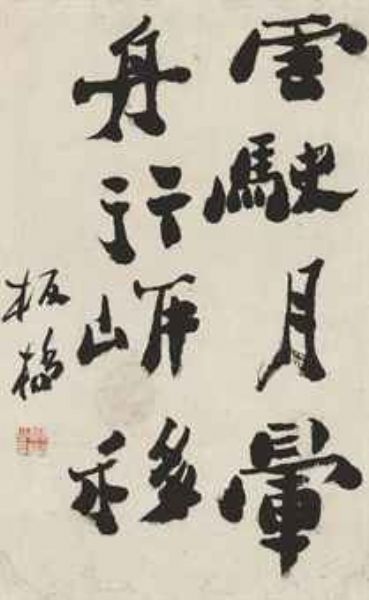 雲駛月暈
舟行岸移
板橋